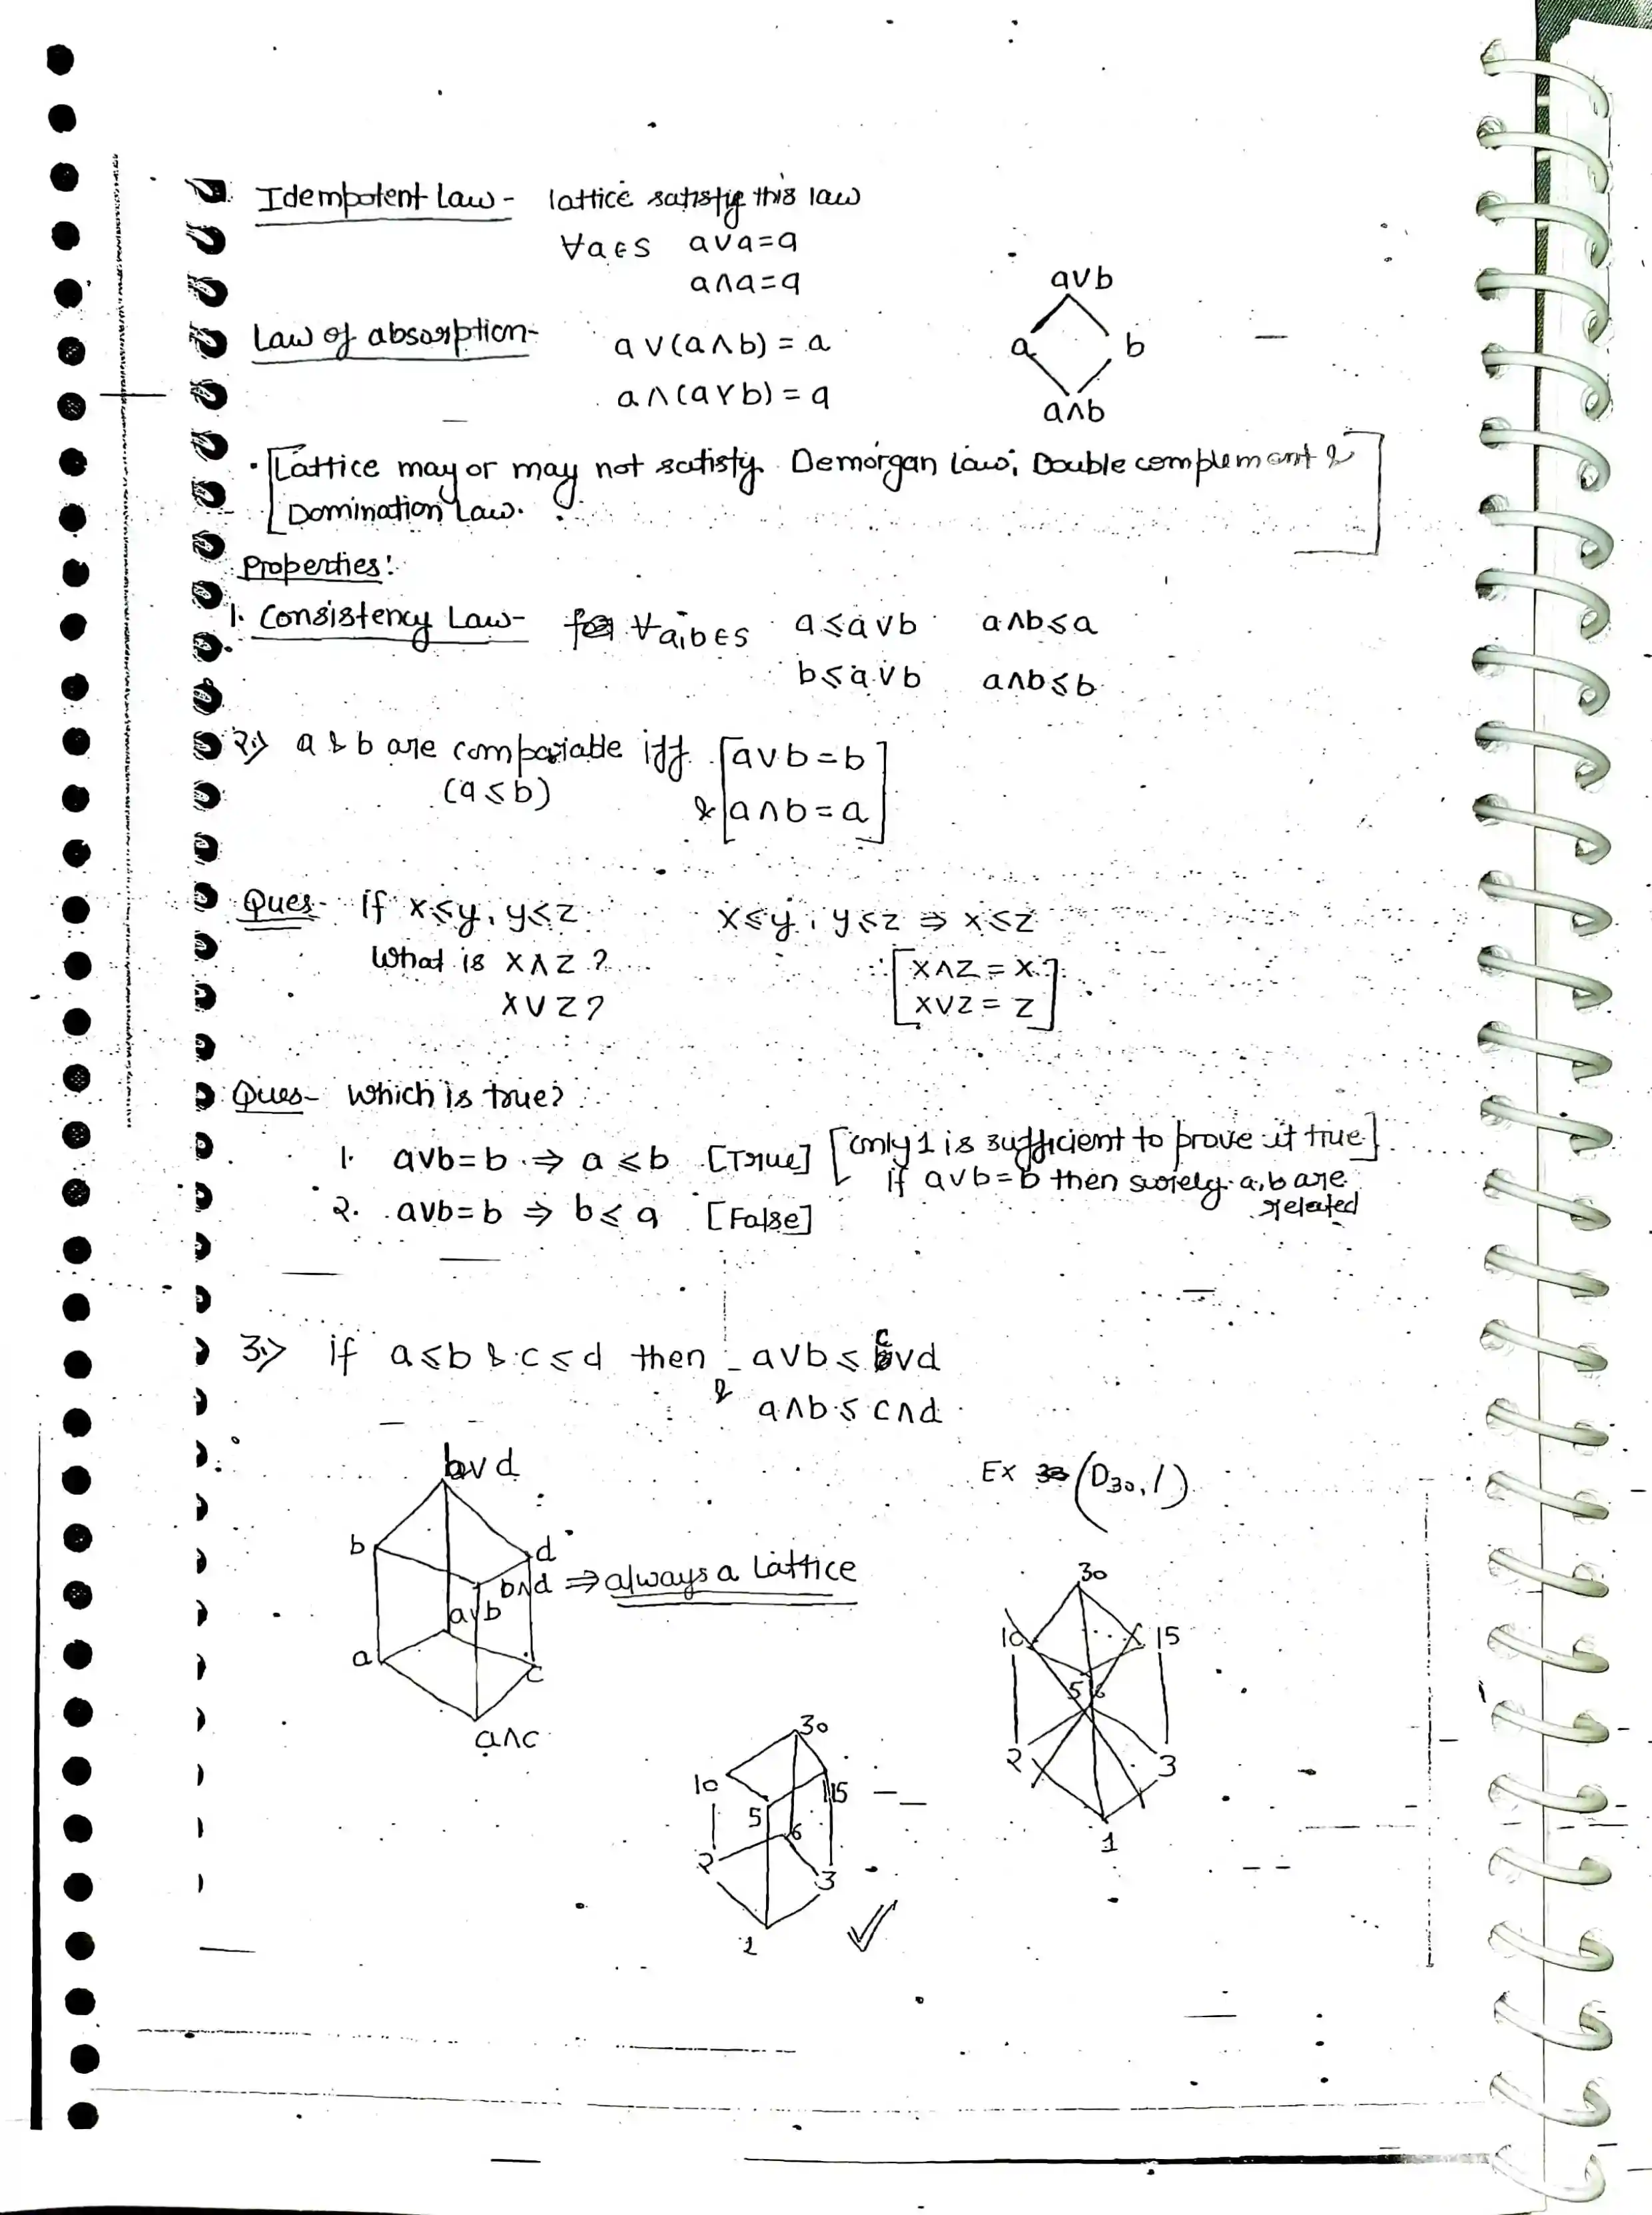 Idempotent Law - lattice satisfy this law
∀a∈S a∨a=a
a∧a=a
Law of absorption- a∨(a∧b) = a
a∧(a∨b) = a
a∨b
a b
a∧b
• [Lattice may or may not satisfy Demorgan law, Double complement &
Domination Law.]
Properties:
1. Consistency Law- ∀a,b∈S a≤a∨b a∧b≤a
b≤a∨b a∧b≤b
2.> a & b are comparable iff [a∨b=b
(a≤b) & a∧b=a]
Ques- if x≤y, y≤z x≤y, y≤z ⇒ x≤z
What is x∧z? [x∧z = x
x∨z? x∨z = z]
Ques- Which is true?
1. a∨b=b ⇒ a≤b [True] [only 1 is sufficient to prove it true]
if a∨b=b then surely a,b are
related
2. a∨b=b ⇒ b≤a [False]
3.> if a≤b & c≤d then a∨b ≤ c∨d
& a∧b ≤ c∧d
b∨d
b d
b∧d ⇒ always a Lattice
a∨b
a c
a∧c
Ex (D30, /)
30
10 15
5 6
2 3
1
30
10 15
5 6
2 3
1